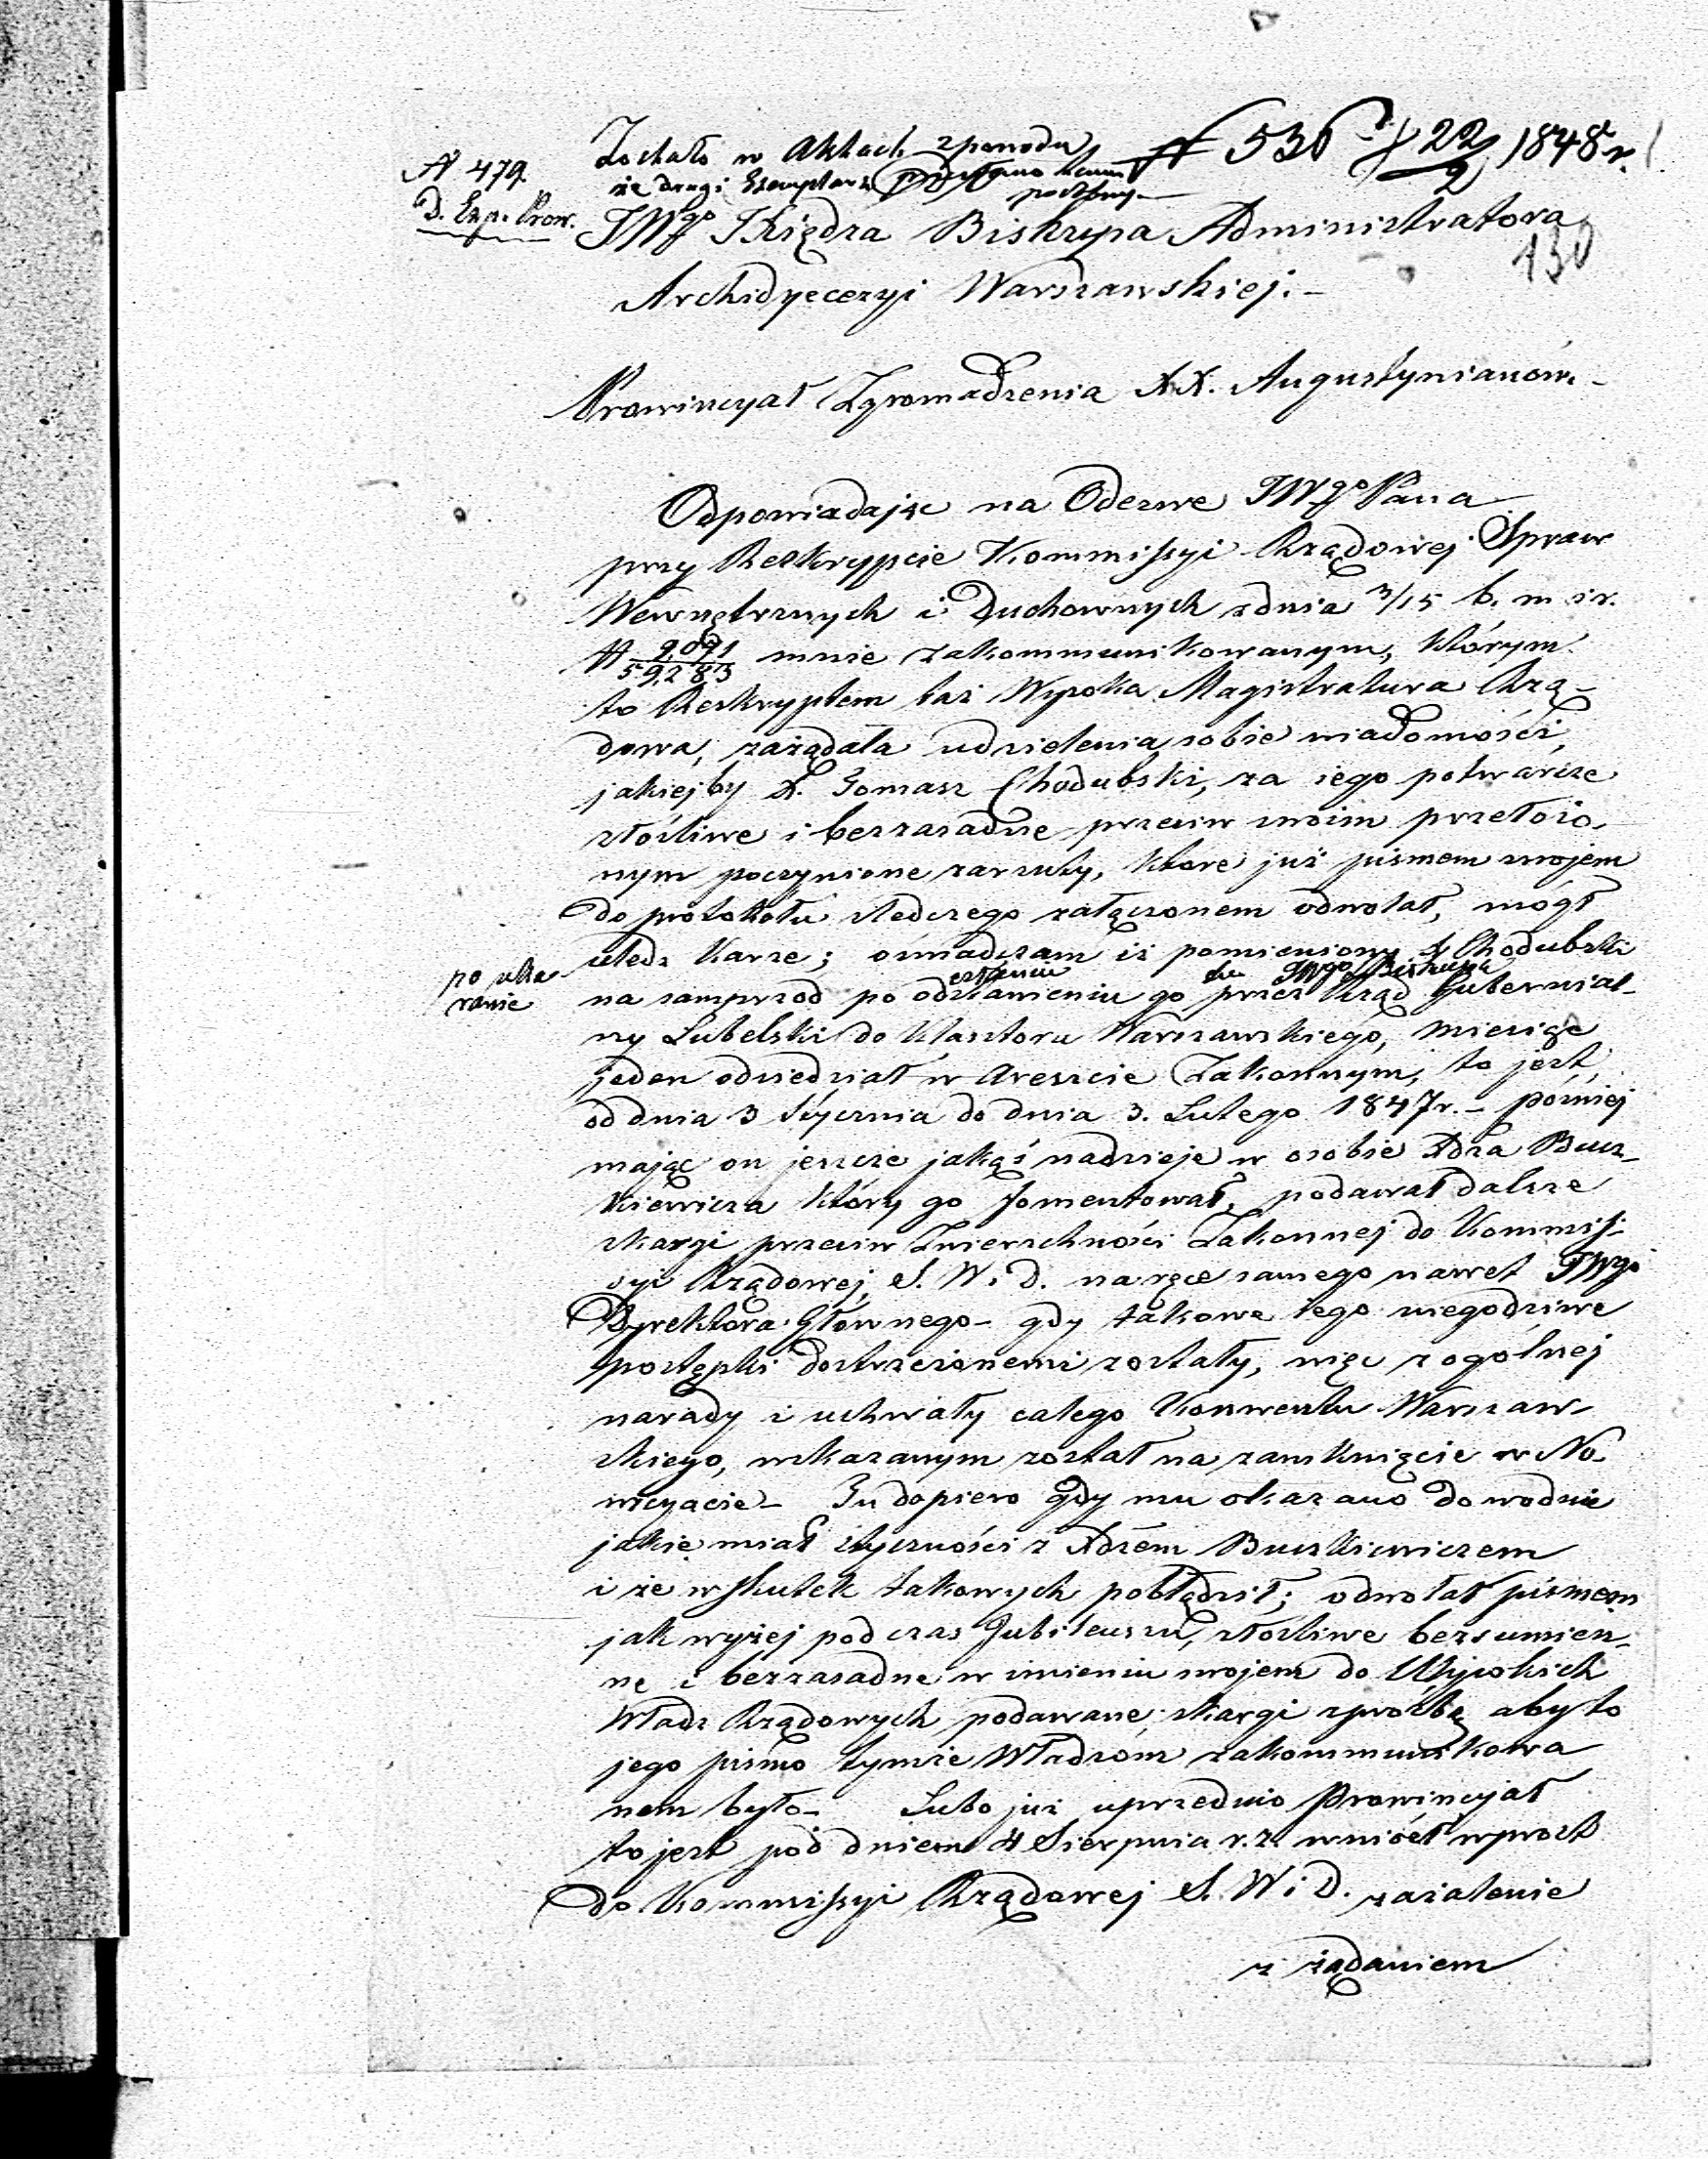 Zostało w Aktach z powodu N 536 d 22/2 1848 r.
że drugi Exemplarz
N 479
D. Exp. Prow.
JWgo JXiędza Biskupa Administratora
130
Archidyecezyi Warszawskiej. –
Prowincyał Zgromadzenia XX. Augustynianów. –
Odpowiadając na Odezwe JWgo Pana
przy Reskrypcie Kommissyi Rządowej Spraw
Wewnętrznych i Duchownych z dnia 3/15 b. m i r.
N 2,091/59,283 mnie zakommunikowanym, którym
to Reskryptem taż Wysoka Magistratura Rzą-
dowa, zażądała udzielenia sobie wiadomości,
jakiejby X. Tomasz Chodubski, za iego potwarcze
złośliwe i bezzasadne przeciw swoim przełożo-
nym poczynione zarzuty, które już pismem swojem
do protokołu śledczego załączonem odwołał, mógł
uledz karze; oświadczam iż pomieniony X Chodubski
po uka
ranie
esłaniu do JWgo Biskupa
na samprzod po odstawieniu go przez Rząd Gubernial-
ny Lubelski do Klasztoru Warszawskiego, miesiąc
jeden odsiedział w Areszcie Zakonnym, to jest,
od dnia 3 Stycznia do dnia 3. Lutego 1847 r. – poźniej
mając on jeszcze jakąś nadzieje w osobie Xdza Bucz-
kiewicza który go fomentował, podawał dalsze
skargi przeciw Zwierzchności Zakonnej do Kommis-
syi Rządowej S. W. i D. na ręce samego nawet JWgo
Dyrektora Głównego – gdy takowe iego niegodziwe
postępki dostrzeżonemi zostały, więc z ogólnej
narady i uchwały całego Konwentu Warszaw-
skiego, wskazanym został na zamknięcie w No-
wicyacie – Tu dopiero gdy mu okazano dowodnie
jakie miał styczności z Xdzem Buczkiewiczem
i że wskutek takowych pobłądził; odwołał pismem
jak wyżej podczas Jubileuszu, złośliwe bezsumien-
ne i bezzasadne w imieniu swojem do Wysokich
Władz Rządowych podawane skargi z proźbą aby to
jego pismo tymże Władzóm zakommunikowa
nem było – Lubo już uprzednio Prowincyał
to jest pod dniem 4 Sierpnia r. z. wniósł wprost
do Kommissyi Rządowej S. W i D. zażalenie
z żądaniem